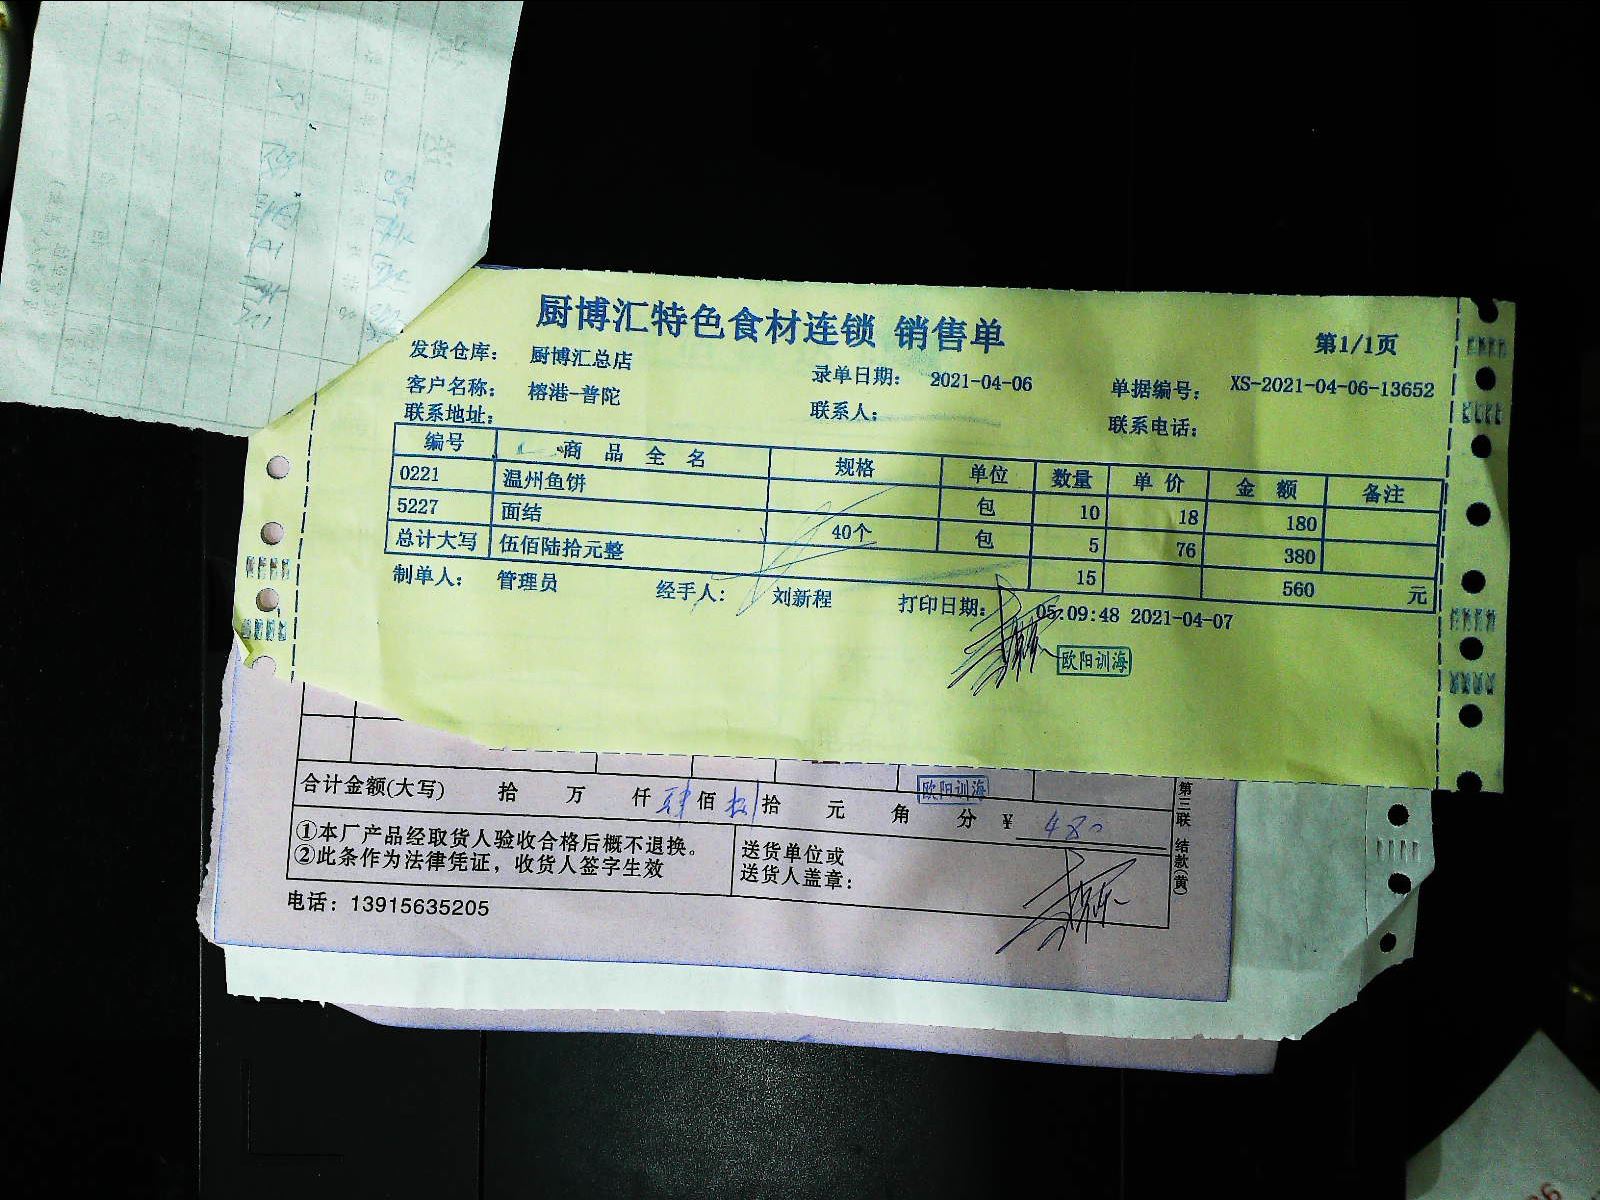 厨博汇特色食材连锁 销售单
第1/1页
发货仓库： 厨博汇总店 录单日期： 2021-04-06 单据编号： XS-2021-04-06-13652
客户名称： 榕港-普陀 联系人： 联系电话：
联系地址：
编号 商品全名 规格 单位 数量 单价 金额 备注
0221 温州鱼饼 包 10 18 180
5227 面结 40个 包 5 76 380
总计大写 伍佰陆拾元整 15 560 元
制单人： 管理员 经手人： 刘新程 打印日期： 05:09:48 2021-04-07
欧阳训海
欧阳训海
合计金额(大写) 拾 万 仟 肆 佰 捌 拾 元 角 分 ¥ 480
①本厂产品经取货人验收合格后概不退换。
②此条作为法律凭证，收货人签字生效
送货单位或
送货人盖章：
电话：13915635205
第三联 结款(黄)